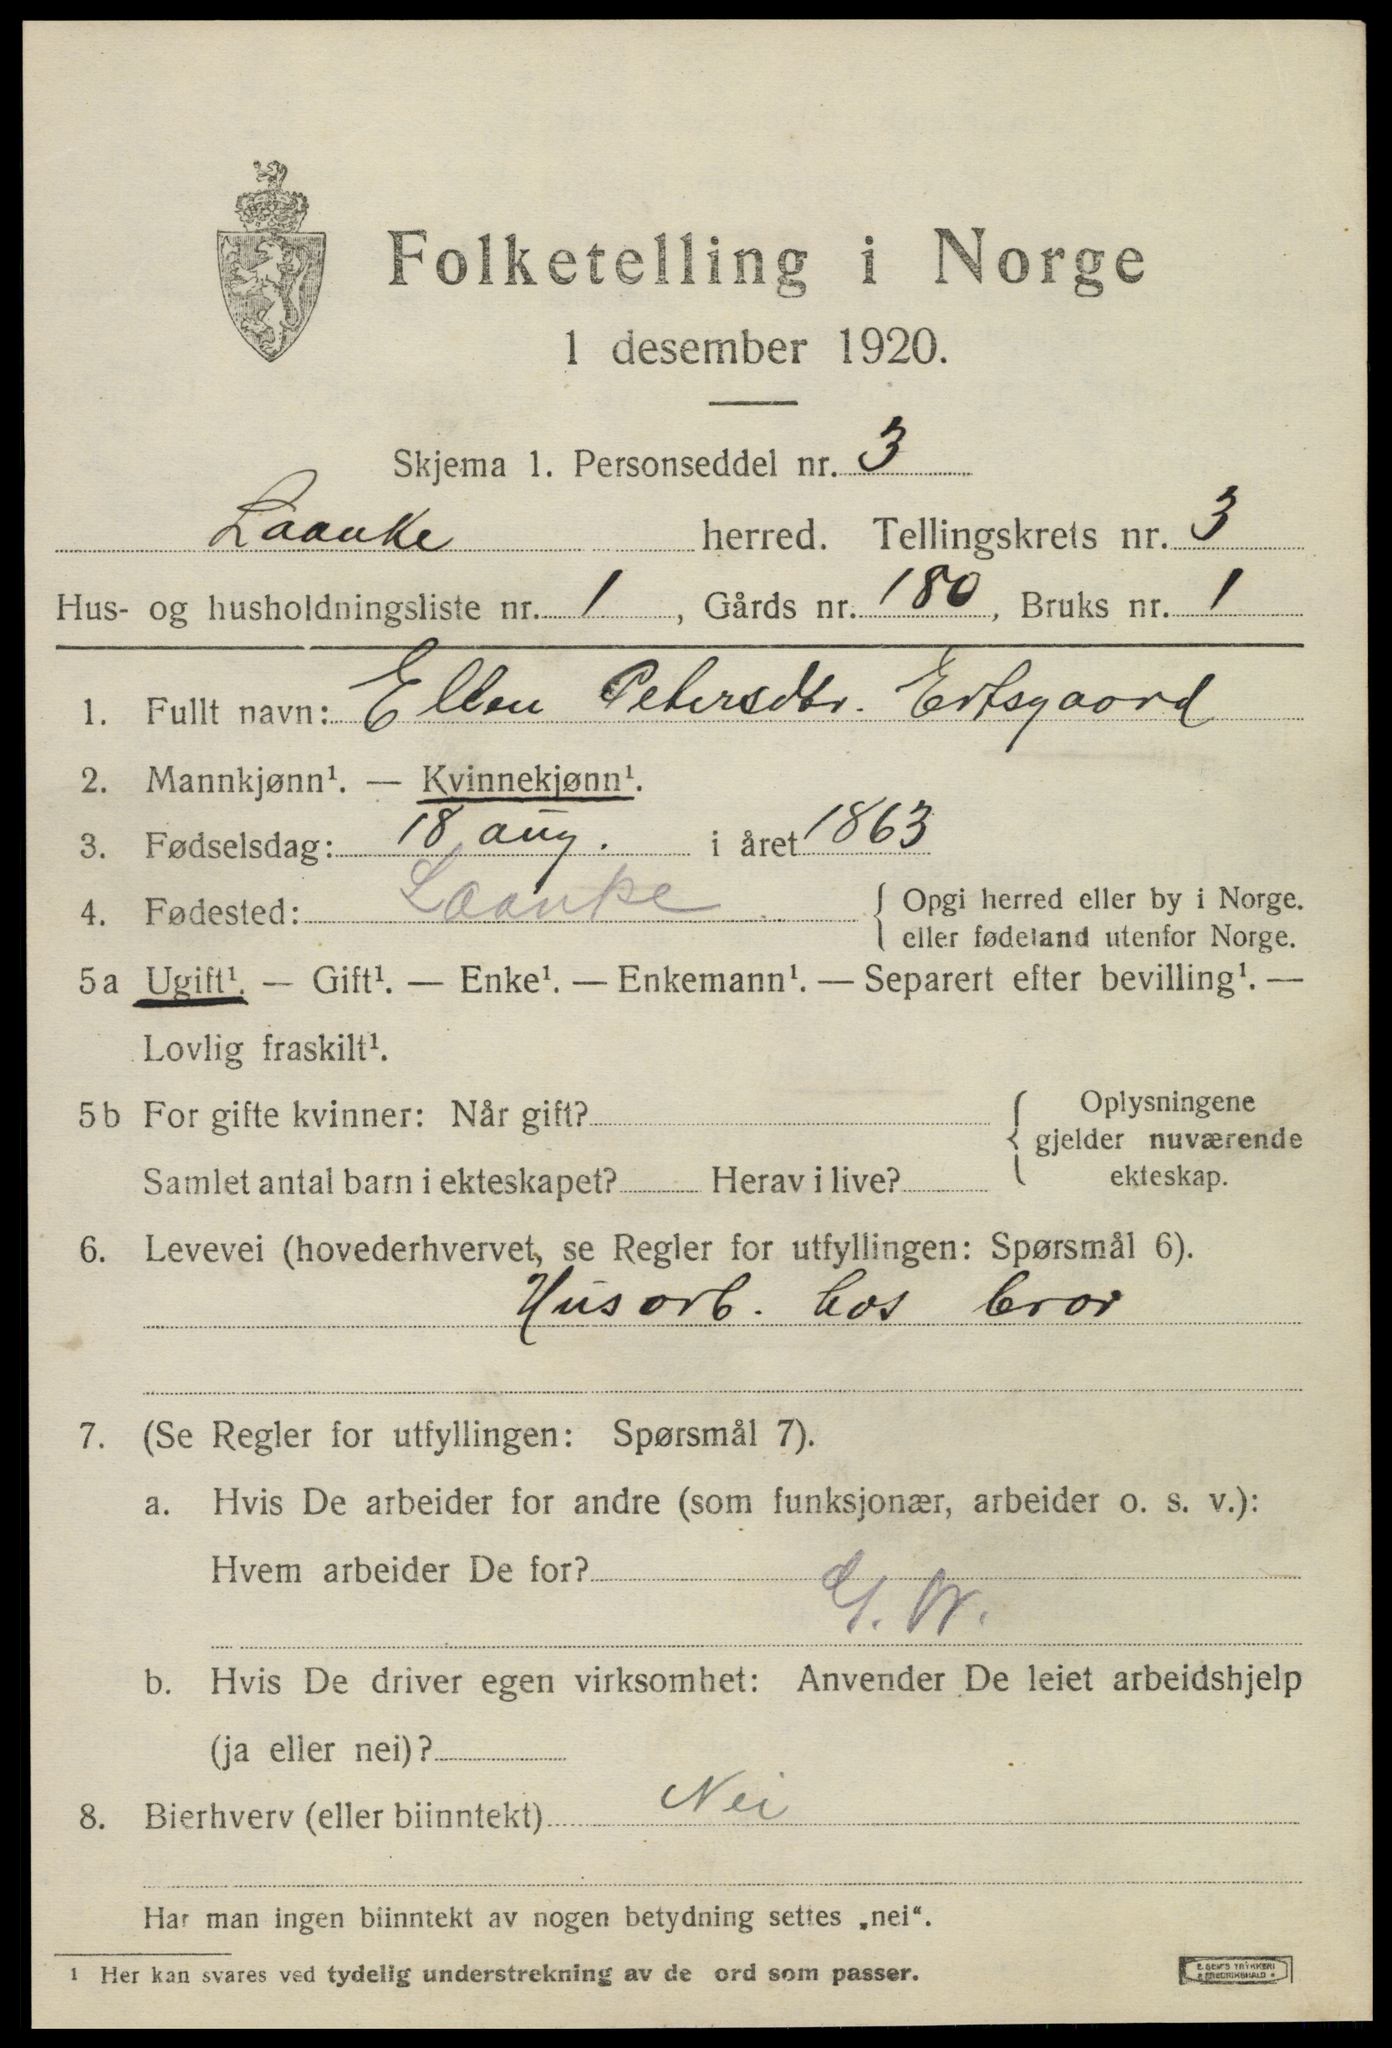 Folketelling i Norge
1 desember 1920.
Skjema 1. Personseddel nr. 3
Laanke herred. Tellingskrets nr. 3
Hus- og husholdningsliste nr. 1, Gårds nr. 180, Bruks nr. 1
1. Fullt navn: Ellen Petersdtr. Ertsgaard
2. Mannkjønn¹. — Kvinnekjønn¹.
3. Fødselsdag: 18 aug. i året 1863
4. Fødested: Laanke { Opgi herred eller by i Norge.
eller fødeland utenfor Norge.
5a Ugift¹. — Gift¹. — Enke¹. — Enkemann¹. — Separert efter bevilling¹. —
Lovlig fraskilt¹.
5b For gifte kvinner: Når gift? { Oplysningene
gjelder nuværende
Samlet antal barn i ekteskapet? Herav i live? ekteskap.
6. Levevei (hovederhvervet, se Regler for utfyllingen: Spørsmål 6).
Husarb. hos bror
7. (Se Regler for utfyllingen: Spørsmål 7).
a. Hvis De arbeider for andre (som funksjonær, arbeider o. s. v.):
Hvem arbeider De for?
b. Hvis De driver egen virksomhet: Anvender De leiet arbeidshjelp
(ja eller nei)?
8. Bierhverv (eller biinntekt) Nei
Har man ingen biinntekt av nogen betydning settes „nei“.
1 Her kan svares ved tydelig understrekning av de ord som passer.
E. SEM'S TRYKKERI
FREDRIKSHALD